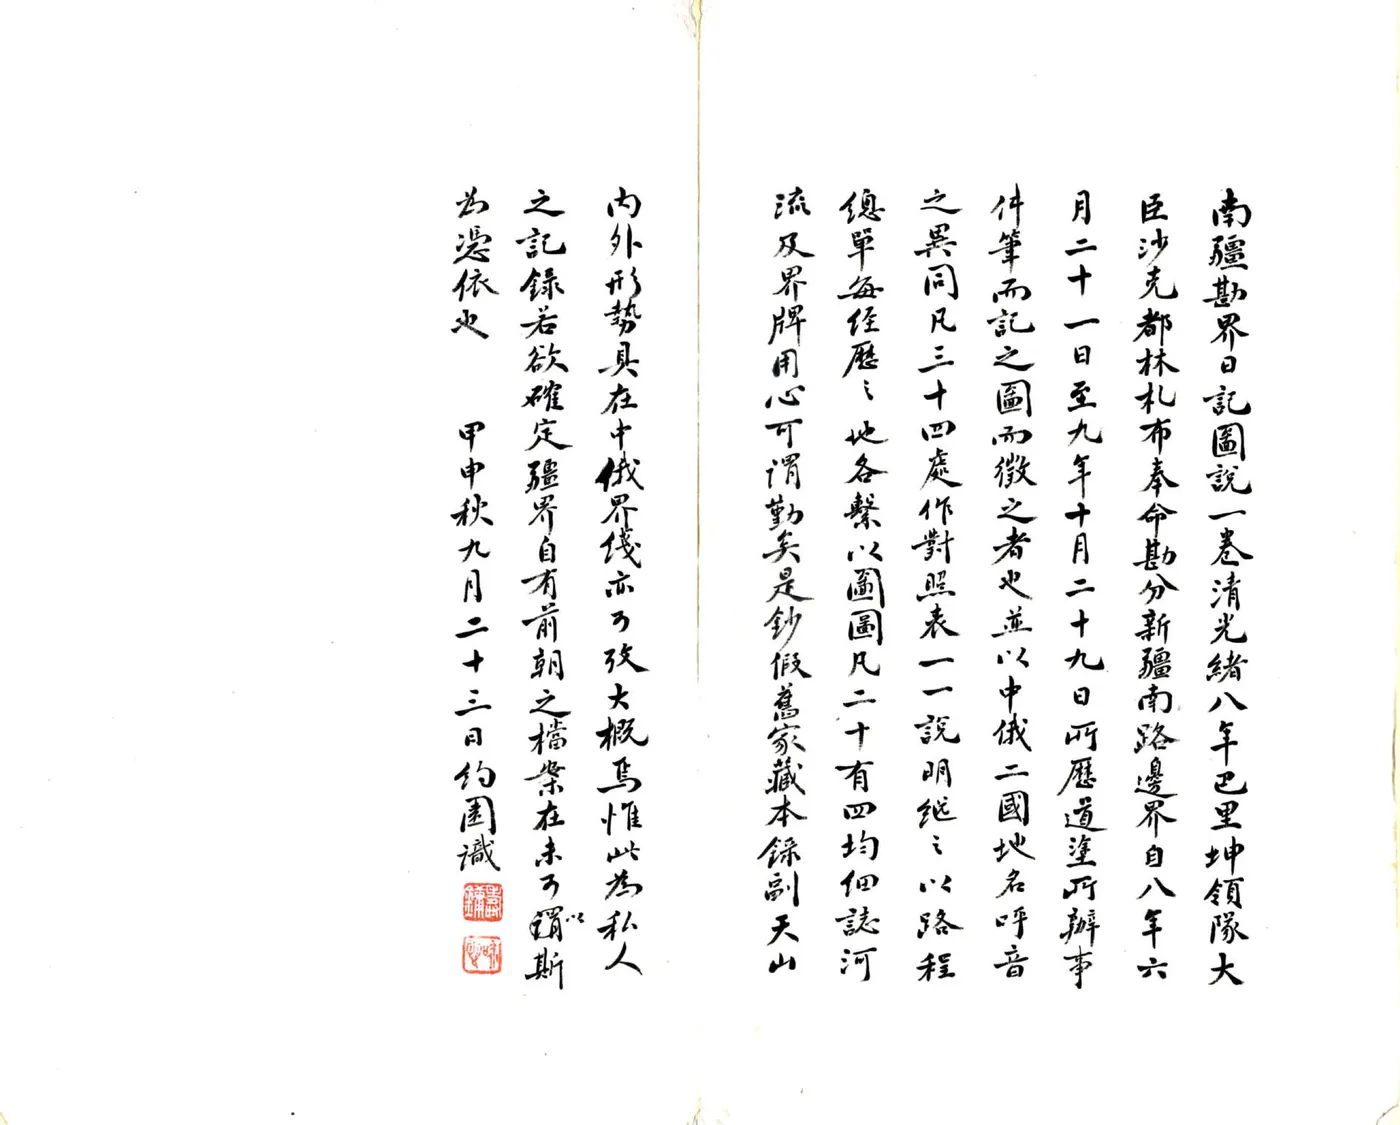 南疆勘界日記圖說一卷清光緒八年巴里坤領隊大
臣沙克都林札布奉命勘分新疆南路邊界自八年六
月二十一日至九年十月二十九日所歷道塗所辦事
件筆而記之圖而徵之者也並以中俄二國地名呼音
之異同凡三十四處作對照表一一說明繼之以路程
總單每經歷之地各繫以圖圖凡二十有四均細誌河
流及界牌用心可謂勤矣是鈔假舊家藏本錄副天山
內外形勢具在中俄界綫亦可攷大概焉惟此為私人
之記錄若欲確定疆界自有前朝之檔案在未可以謂斯
為憑依也　甲申秋九月二十三日約園識
壽鏞
詠霓